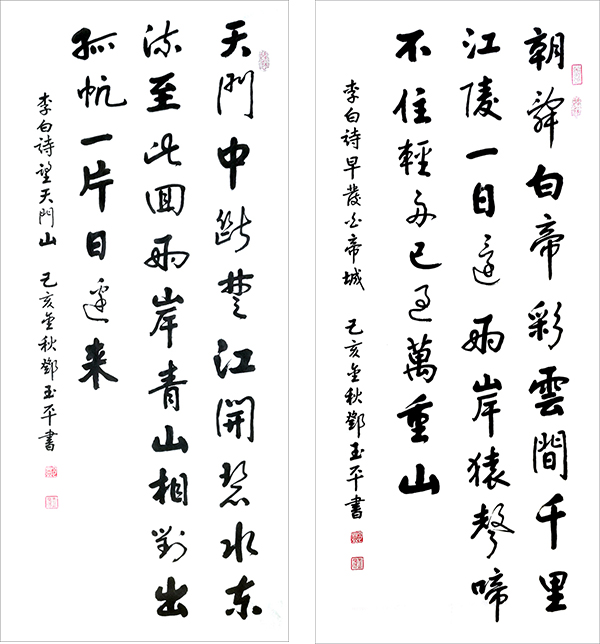 朝辭白帝彩雲間千里
江陵一日還兩岸猿聲啼
不住輕舟已過萬重山
李白詩早發白帝城 己亥金秋鄧玉平書
天門中斷楚江開碧水東
流至此回兩岸青山相對出
孤帆一片日邊来
李白詩望天門山 己亥金秋鄧玉平書